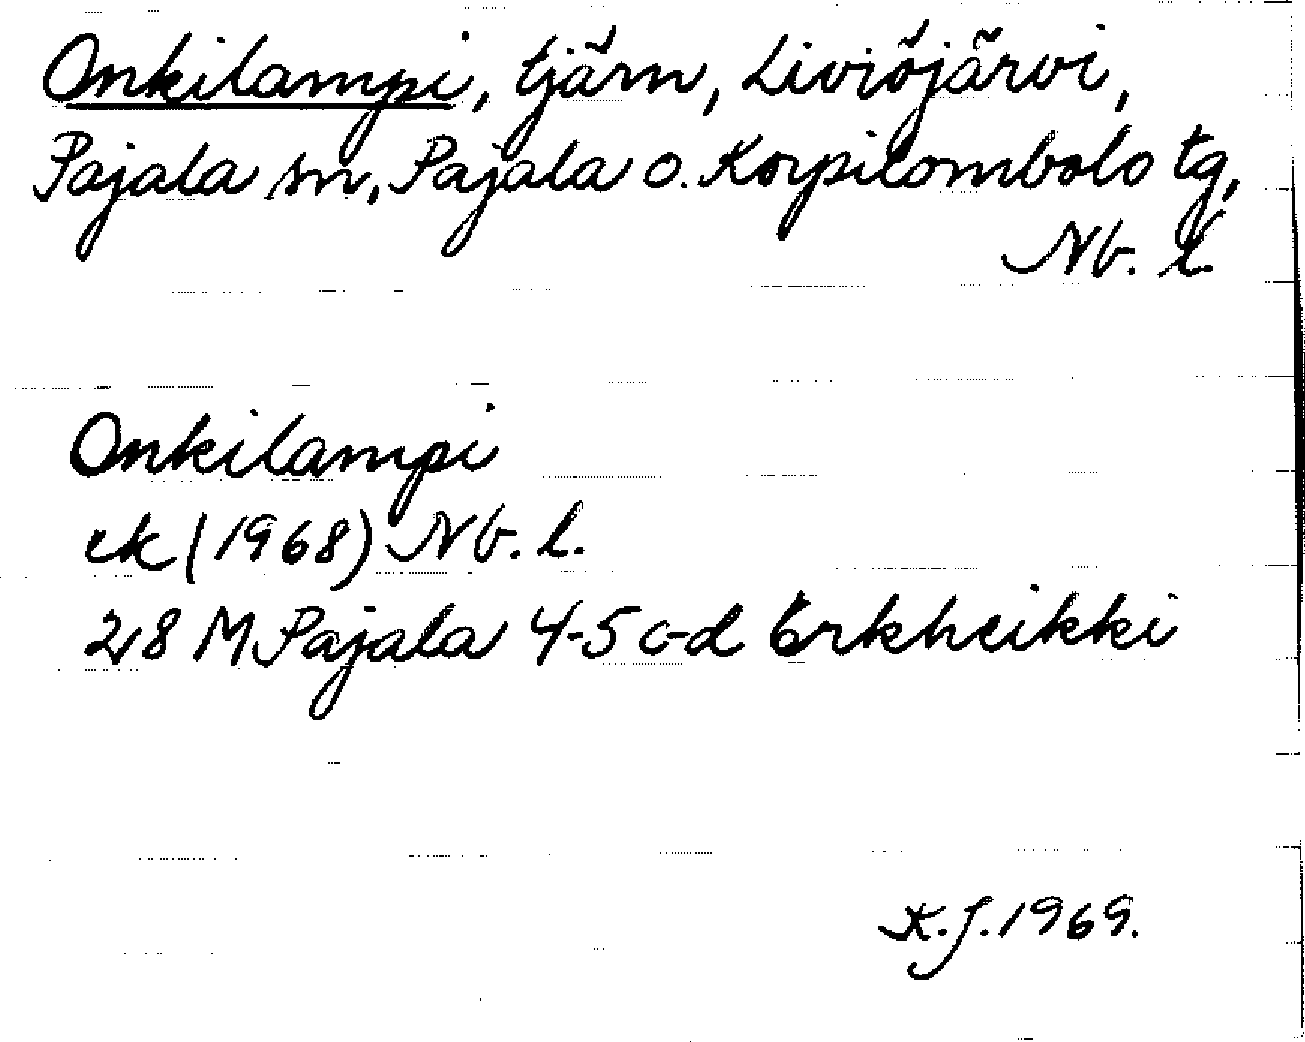 Onkilampi, tjärn, Liviöjärvi,
Pajala sn, Pajala o. Korpilombolo tg,
Nb. l.
Onkilampi
ek (1968) Nb. l.
28 M Pajala 4-5 c-d Erkheikki
K.J. 1969.